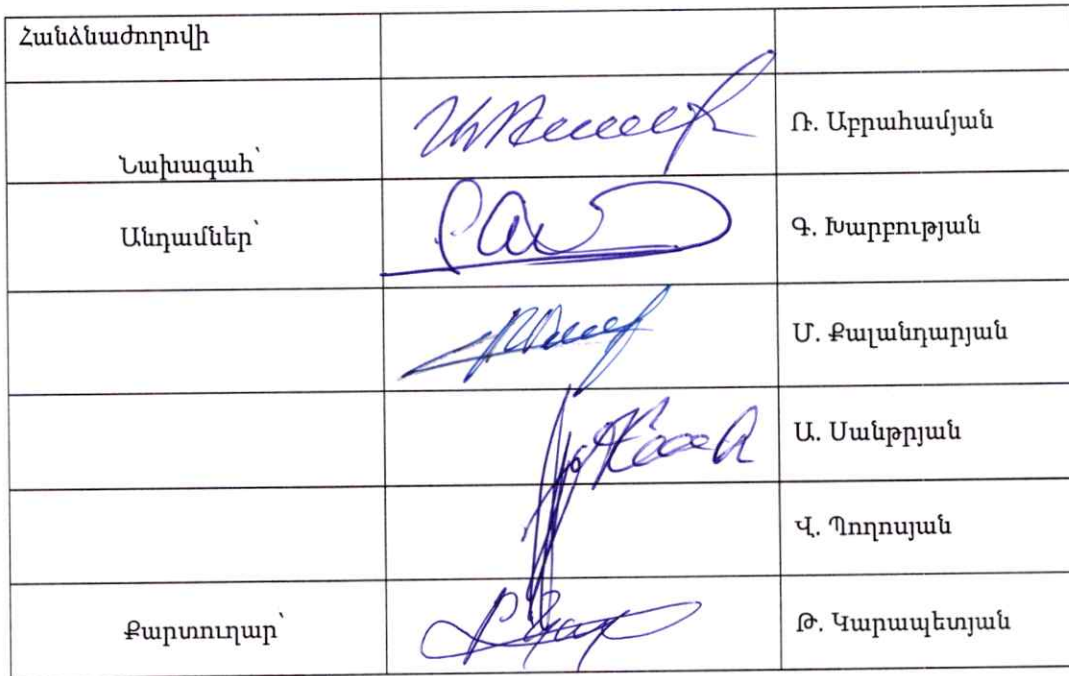 Հանձնաժողովի
Նախագահ՝ Ռ. Աբրահամյան
Անդամներ՝ Գ. Խարբության
Մ. Քալանդարյան
Ա. Սանթրյան
Վ. Պողոսյան
Քարտուղար՝ Թ. Կարապետյան